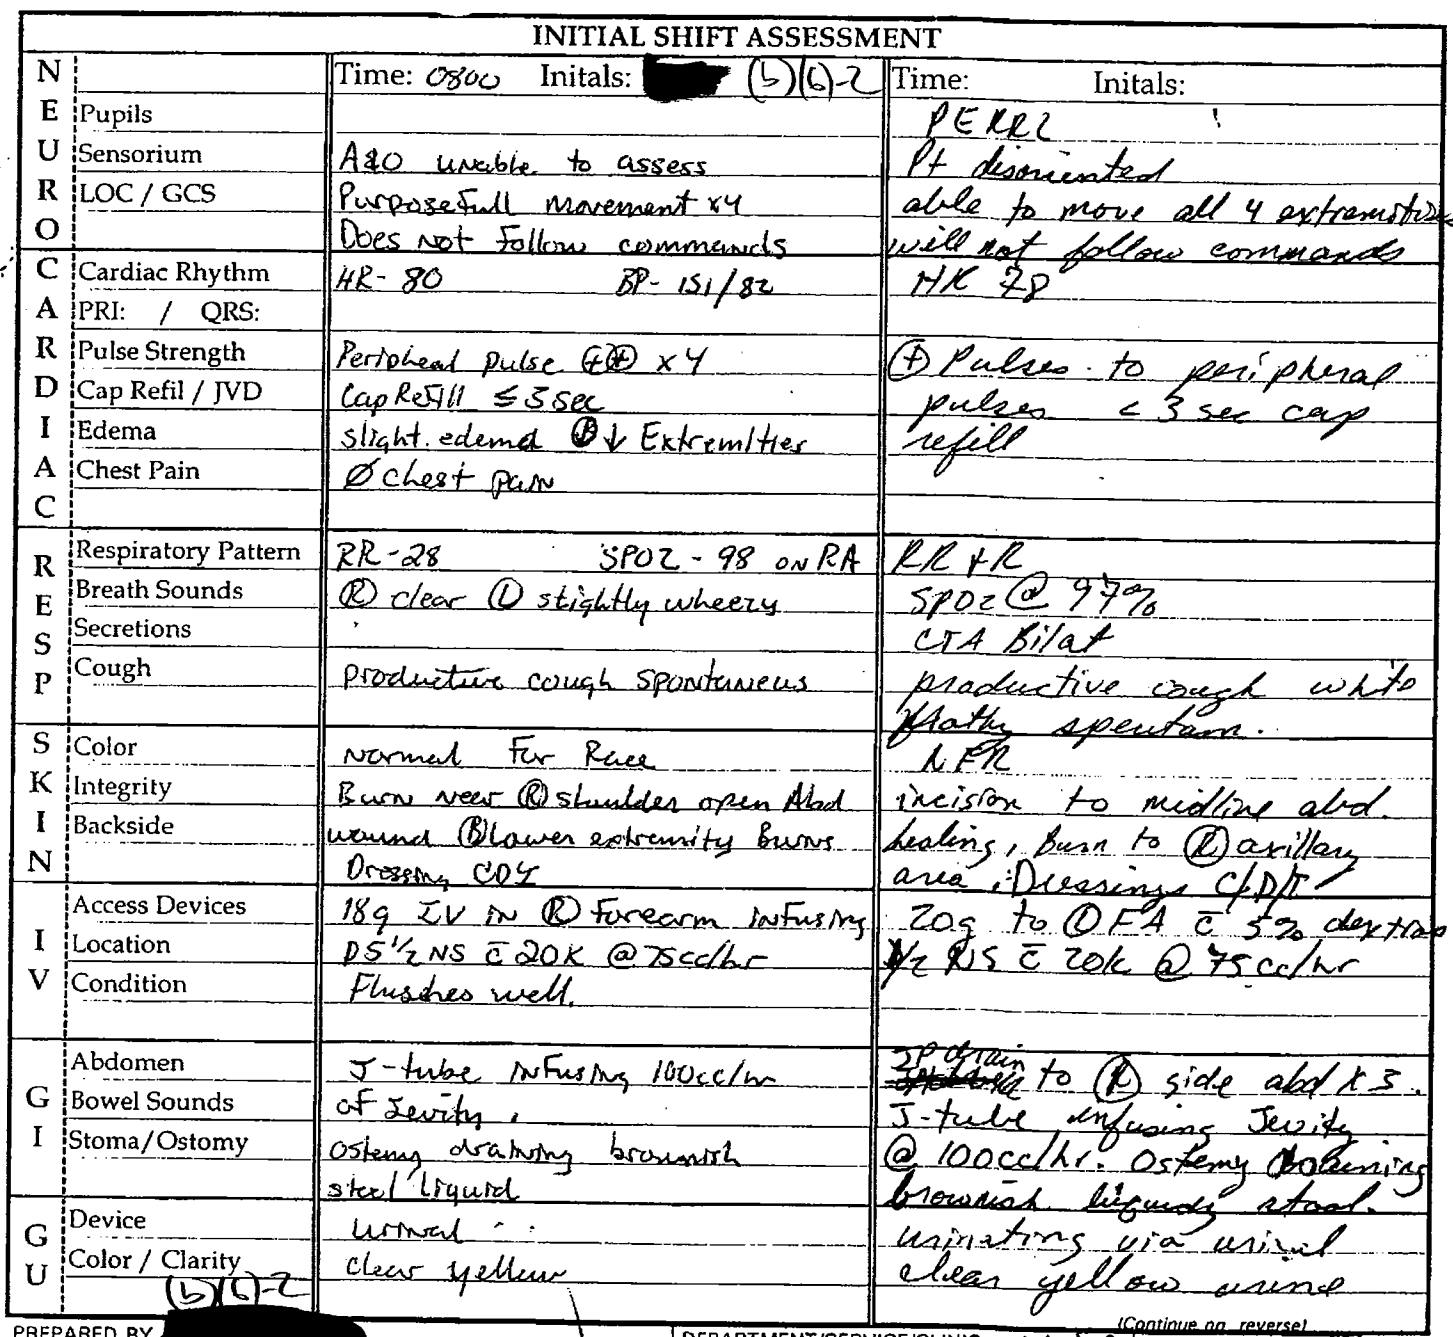 INITIAL SHIFT ASSESSMENT
NEURO
Time: 0800 Initals: (b)(6)-2 Time: Initals:
Pupils PERRL
Sensorium A&O unable to assess Pt disoriented
LOC / GCS Purposefull movement x4 able to move all 4 extremities
Does not follow commands will not follow commands
CARDIAC
Cardiac Rhythm HR- 80 BP- 151/82 HR 78
PRI: / QRS:
Pulse Strength Peripheal pulse ++ x4 (+) Pulses to peripheral
Cap Refil / JVD Cap Refill ≤3 sec pulses < 3 sec cap
Edema slight edema (B) ↓ Extremities refill
Chest Pain Ø chest pain
RESP
Respiratory Pattern RR-28 SPO2 - 98 on RA RR+R
Breath Sounds (R) clear (L) slightly wheezy SPO2 @ 97%
Secretions CTA Bilat
Cough productive cough spontaneus productive cough white
frothy sputum.
SKIN
Color Normal For Race NFR
Integrity Burn near (R) shoulder open Abd incision to midline abd.
Backside wound (B) lower extremity Burns healing, Burn to (R) axillary
Dressing CDI area, Dressings C/D/I
IV
Access Devices 18g IV in (R) Forearm infusing 20g to (L) FA c̄ 5% dextrose
Location D5 1/2 NS c̄ 20K @ 75cc/hr 1/2 NS c̄ 20k @ 75cc/hr
Condition Flushes well.
GI
Abdomen J-tube infusing 100cc/hr JP drain to (R) side abd x 3.
Bowel Sounds of Jevity. J-tube infusing Jevity
Stoma/Ostomy ostemy draining brownish @ 100cc/hr. Ostemy draining
stool liquid brownish liquidy stool.
GU
Device urinal urinating via urinal
Color / Clarity clear yellow clear yellow urine
(b)(6)-2
(Continue on reverse)
PREPARED BY DEPARTMENT/SERVICE/CLINIC